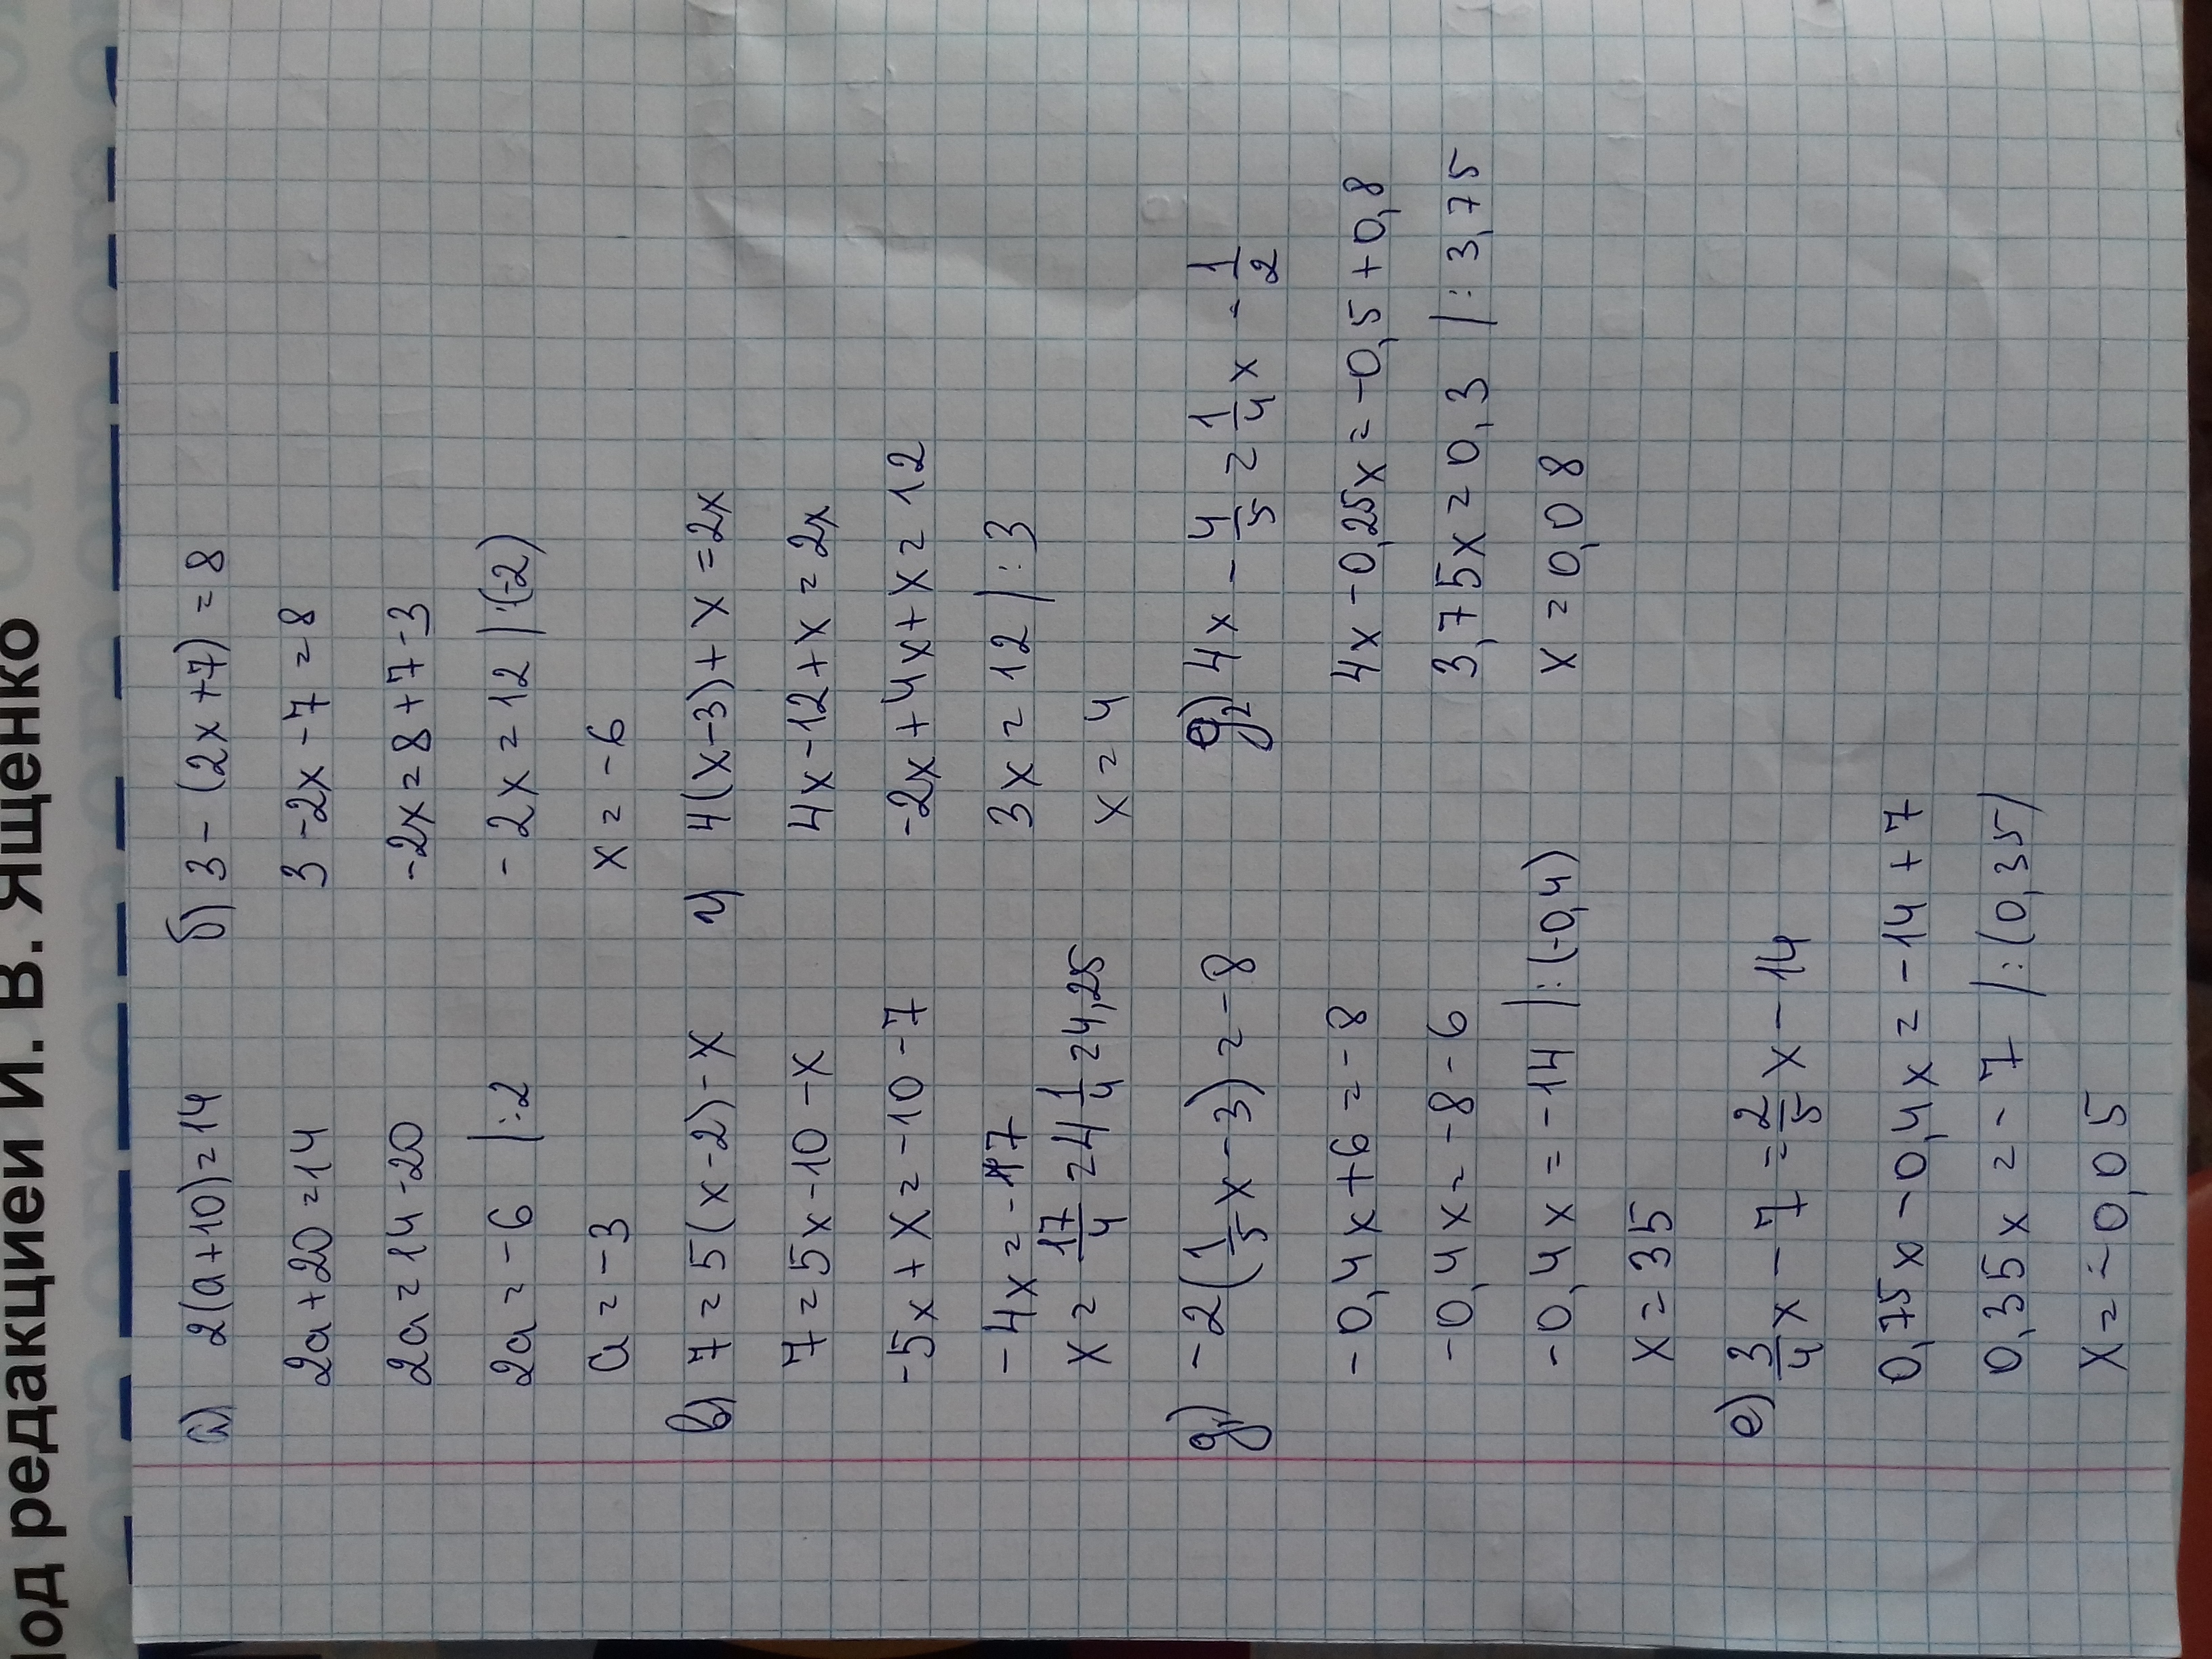 под редакцией И. В. Ященко
а) 2(a+10)=14
2a+20=14
2a=14-20
2a=-6 |:2
a=-3
б) 3-(2x+7)=8
3-2x-7=8
-2x=8+7-3
-2x=12 |:(-2)
x=-6
в) 7=5(x-2)-x
7=5x-10-x
-5x+x=-10-7
-4x=-17
x=17/4=4 1/4=4,25
г) 4(x-3)+x=2x
4x-12+x=2x
-2x+4x+x=12
3x=12 |:3
x=4
д1) -2(1/5x-3)=-8
-0,4x+6=-8
-0,4x=-8-6
-0,4x=-14 |:(-0,4)
x=35
д2) 4x-4/5=1/4x-1/2
4x-0,25x=-0,5+0,8
3,75x=0,3 |:3,75
x=0,08
е) 3/4x-7=2/5x-14
0,75x-0,4x=-14+7
0,35x=-7 |:(0,35)
x=-0,05